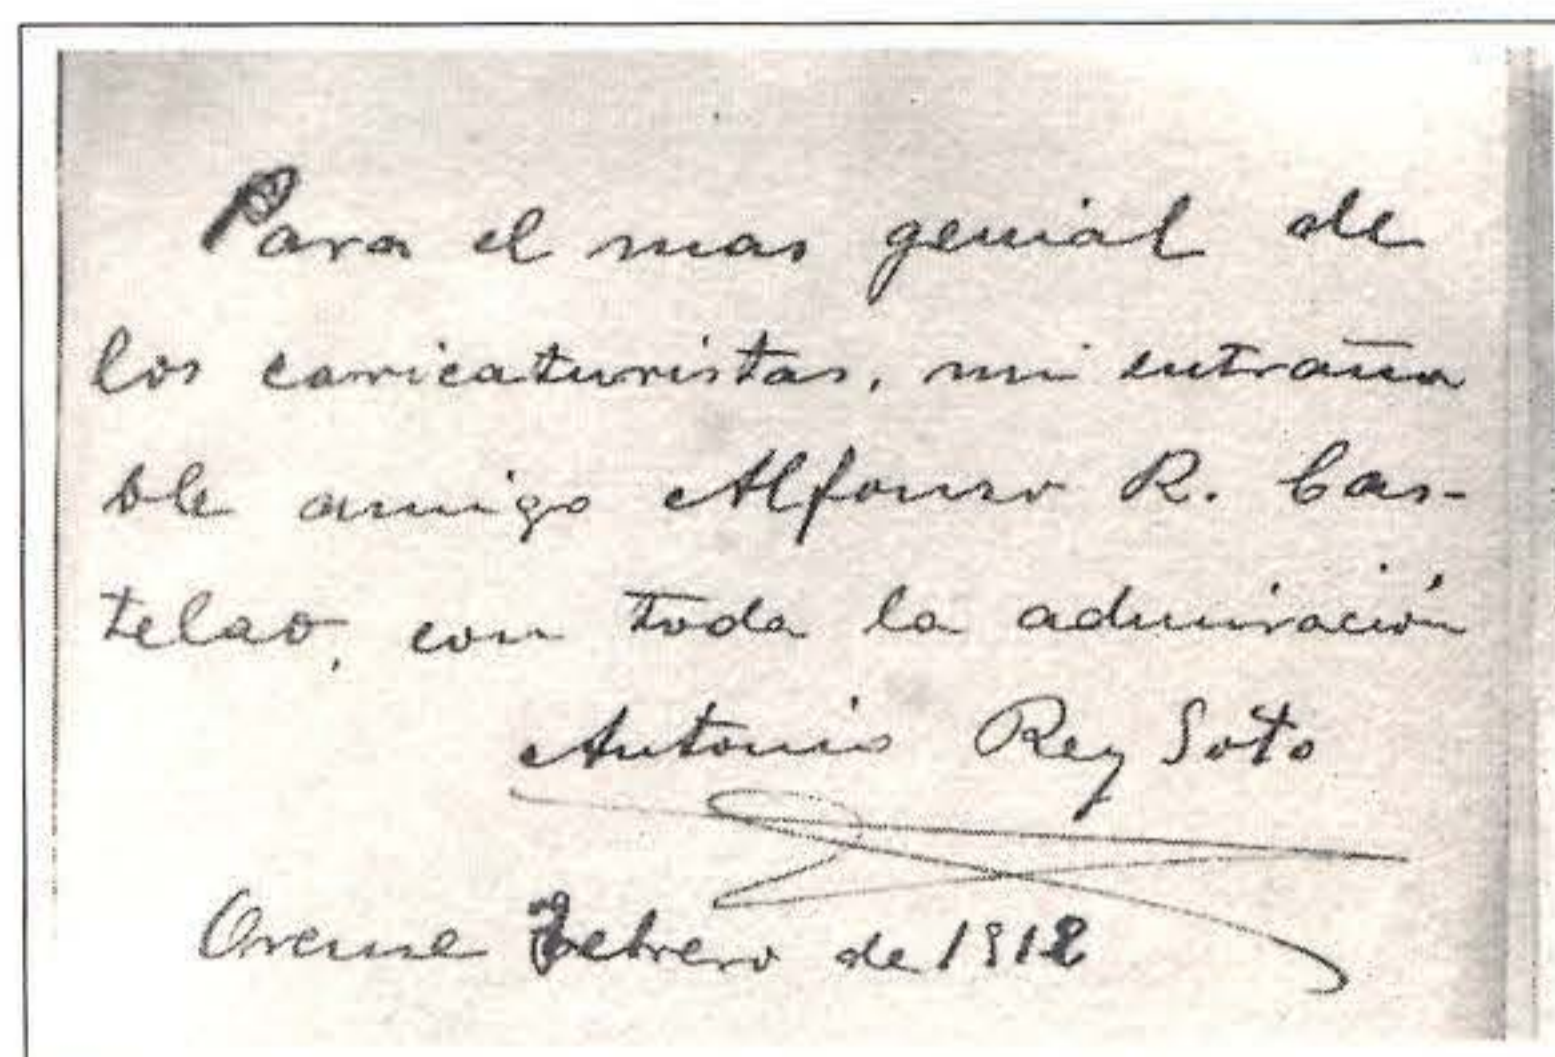 Para el mas genial de
los caricaturistas, mi entraña
ble amigo Alfonso R. Cas-
telao, con toda la admiración
Antonio Rey Soto
Orense Febrero de 1912